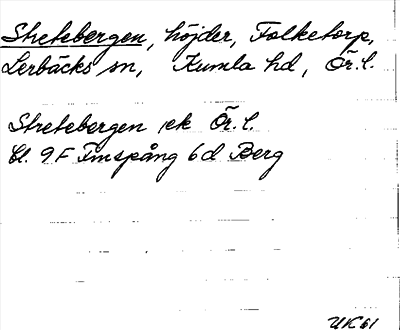 Stretebergen, höjder, Folketorp,
Lerbäcks sn, Kumla hd, Ör. l.
Stretebergen ek Ör. l.
Bl. 9F Finspång 6d Berg
UK 61